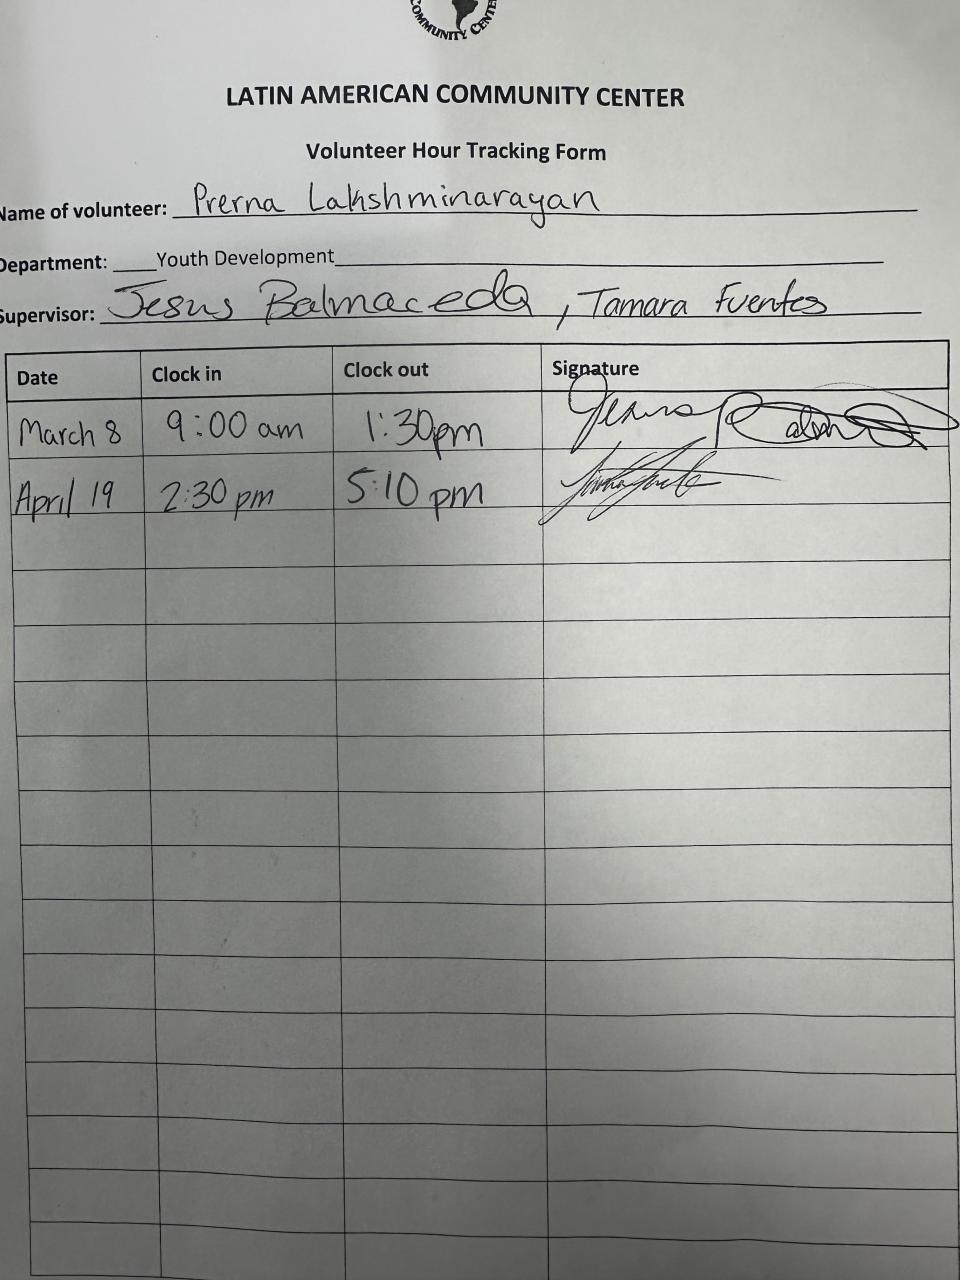 COMMUNITY CENTE
LATIN AMERICAN COMMUNITY CENTER
Volunteer Hour Tracking Form
Name of volunteer: Prerna Lakshminarayan
Department: Youth Development
Supervisor: Jesus Balmaceda, Tamara Fuentes
Date Clock in Clock out Signature
March 8 9:00 am 1:30pm Jesus
April 19 2:30 pm 5:10 pm